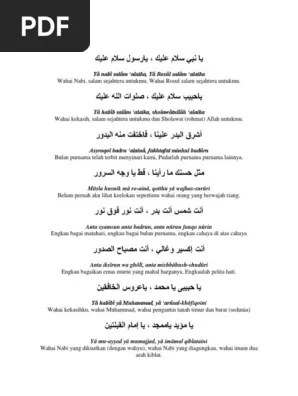 PDF
يا نبي سلام عليك ، يارسول سلام عليك
Yā nabî salâm ‘alaika, Yâ Rasûl salâm ‘alaika
Wahai Nabi, salam sejahtera untukmu, Wahai Rosul salam sejahtera untukmu.
ياحبيب سلام عليك ، صلوات الله عليك
Yâ habîb salâm ‘alaika, sholawâtullâh ‘alaika
Wahai kekasih, salam sejahtera untukmu dan Sholawat (rohmat) Allah untukmu.
أشرق البدر علينا ، فاختفت منه البدور
Asyroqol badru ‘alainâ, fakhtafat minhul budûru
Bulan purnama telah terbit menyinari kami, Pudarlah purnama purnama lainnya.
مثل حسنك ما رأينا ، قط يا وجه السرور
Mitsla husnik mâ ro-ainâ, qoththu yâ wajhas-surûri
Belum pernah aku lihat keelokan sepertimu wahai orang yang berwajah riang.
أنت شمس أنت بدر ، أنت نور فوق نور
Anta syamsun anta badrun, anta nûrun fauqo nûrin
Engkau bagai matahari, engkau bagai bulan purnama, engkau cahaya di atas cahaya
أنت إكسير وغالي ، أنت مصباح الصدور
Anta iksîrun wa ghôlî, anta mishbâhush-shudûri
Engkau bagaikan emas murni yang mahal harganya, Engkaulah pelita hati.
يا حبيبى يا محمد ، ياعروس الخافقين
Yâ habîbî yâ Muhammad, yâ ‘arûsal-khôfiqoini
Wahai kekasihku, wahai Muhammad, wahai pengantin tanah timur dan barat (sedunia)
يا مؤيد ياممجد ، يا إمام القبلتين
Yâ mu-ayyad yâ mumajjad, yâ imâmal qiblataini
Wahai Nabi yang dikuatkan (dengan wahyu), wahai Nabi yang diagungkan, wahai imam dua
arah kiblat.